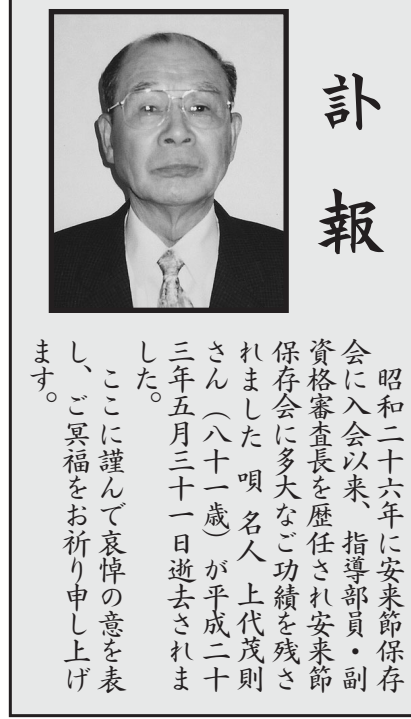 訃報
昭和二十六年に安来節保存
会に入会以来、指導部員・副
資格審査長を歴任され安来節
保存会に多大なご功績を残さ
れました 唄 名人 上代茂則
さん（八十一歳）が平成二十
三年五月三十一日逝去されま
した。
ここに謹んで哀悼の意を表
し、ご冥福をお祈り申し上げ
ます。